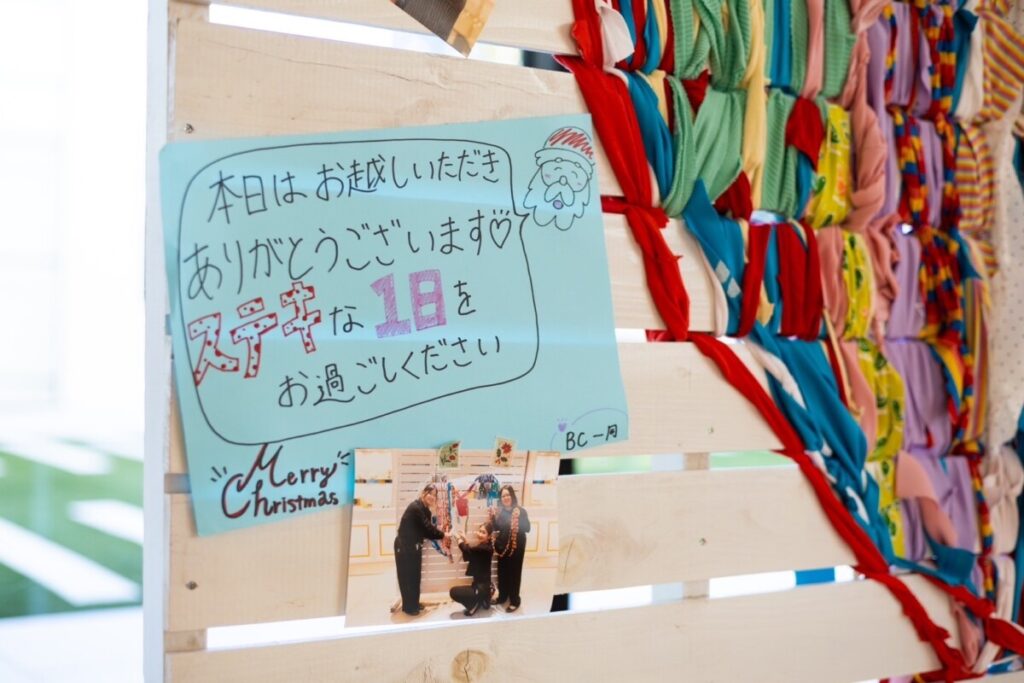 本日は お越しいただき
ありがとうございます♡
ステキな1日を
お過ごしください
BC一同
Merry
Christmas